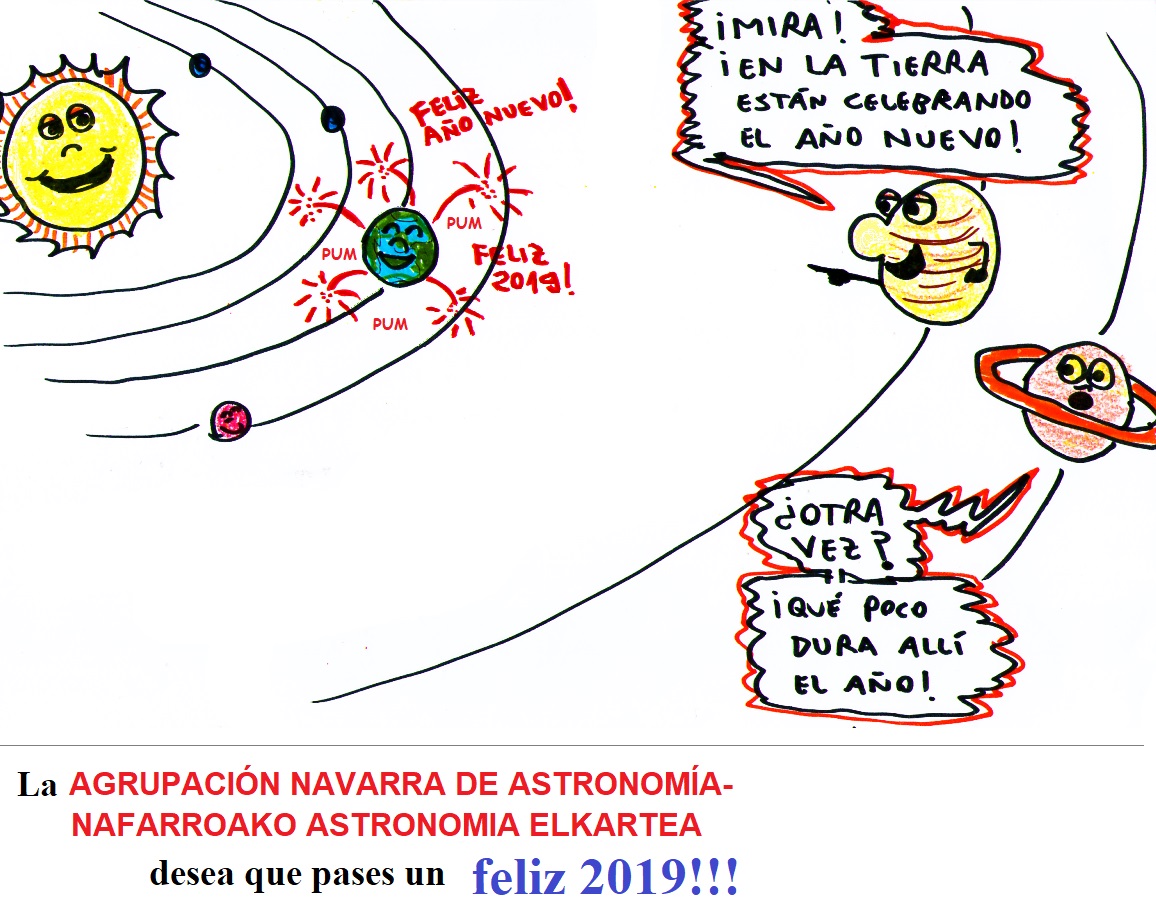 ¡MIRA!
¡EN LA TIERRA
ESTÁN CELEBRANDO
EL AÑO NUEVO!
FELIZ
AÑO NUEVO!
PUM
PUM
FELIZ
2019!
PUM
¿OTRA
VEZ?
¡QUÉ POCO
DURA ALLÍ
EL AÑO!
La AGRUPACIÓN NAVARRA DE ASTRONOMÍA-
NAFARROAKO ASTRONOMIA ELKARTEA
desea que pases un feliz 2019!!!